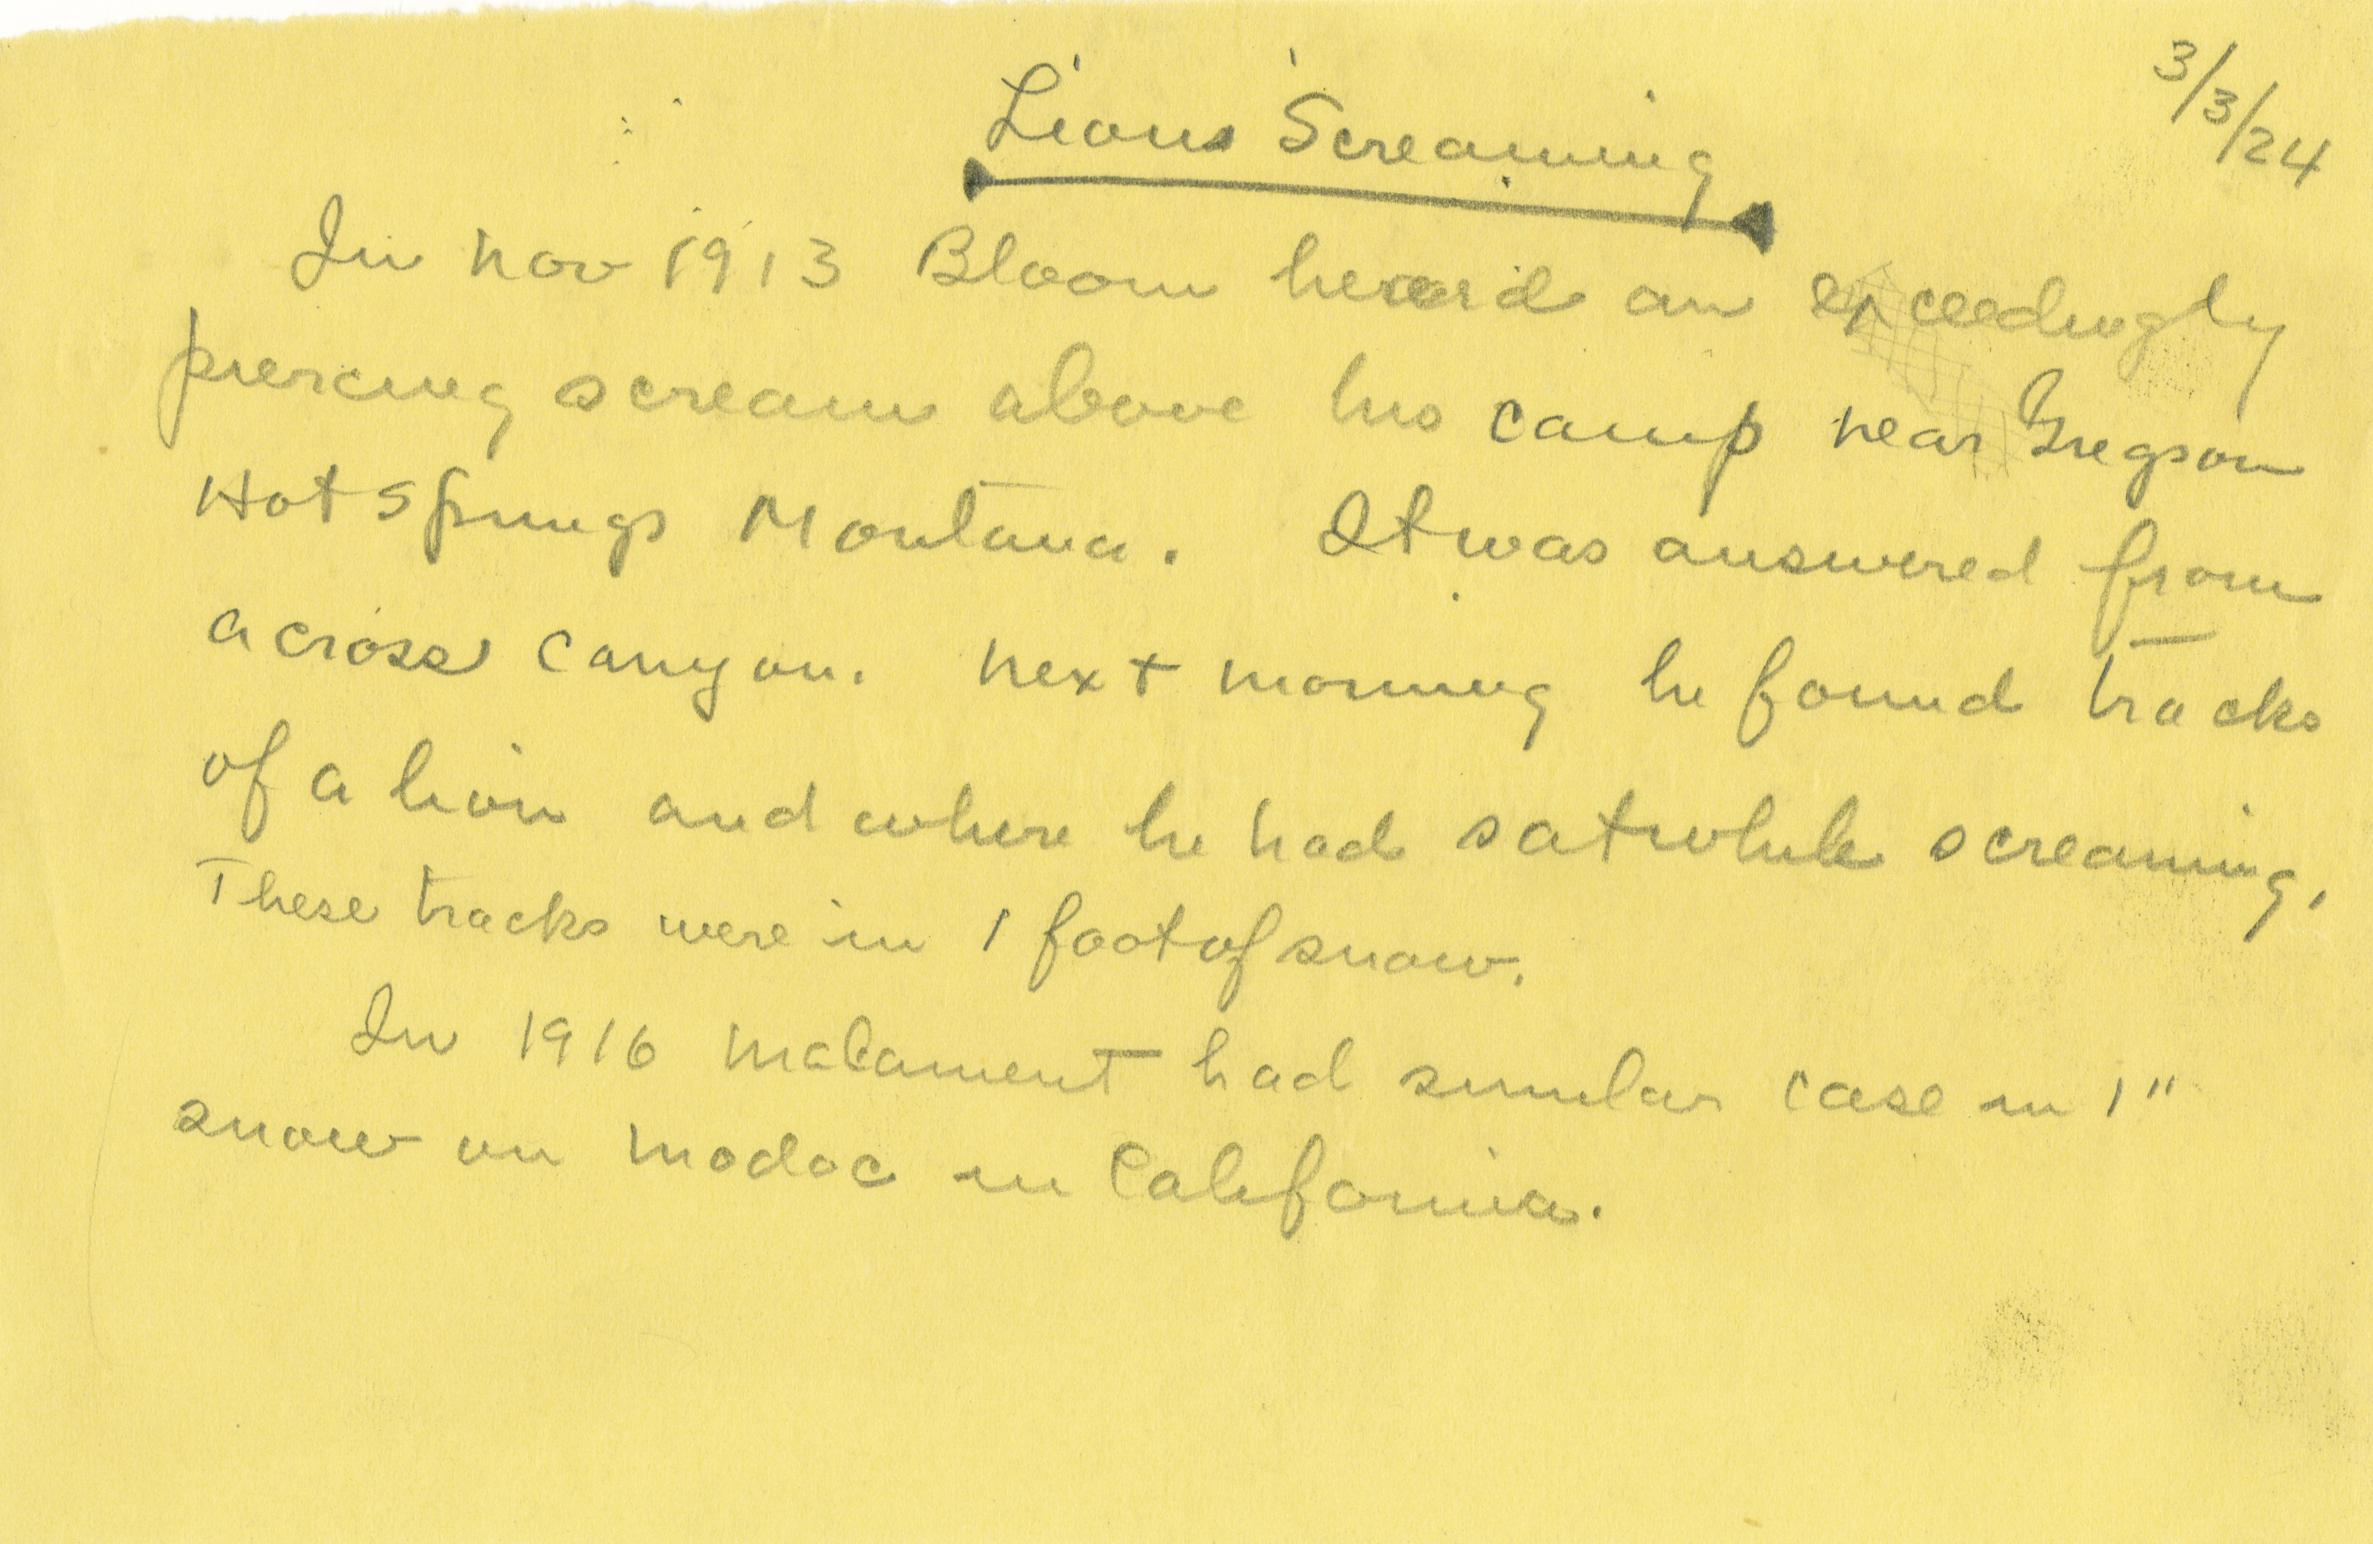 3/3/24
Lions Screaming
In Nov 1913 Bloom heard an exceedingly
piercing scream above his camp near Gregson
Hot Springs Montana. It was answered from
across canyon. Next morning he found tracks
of a lion and where he had sat while screaming.
These tracks were in 1 foot of snow.
In 1916 had similar case in 1"
snow on Modoc in California.